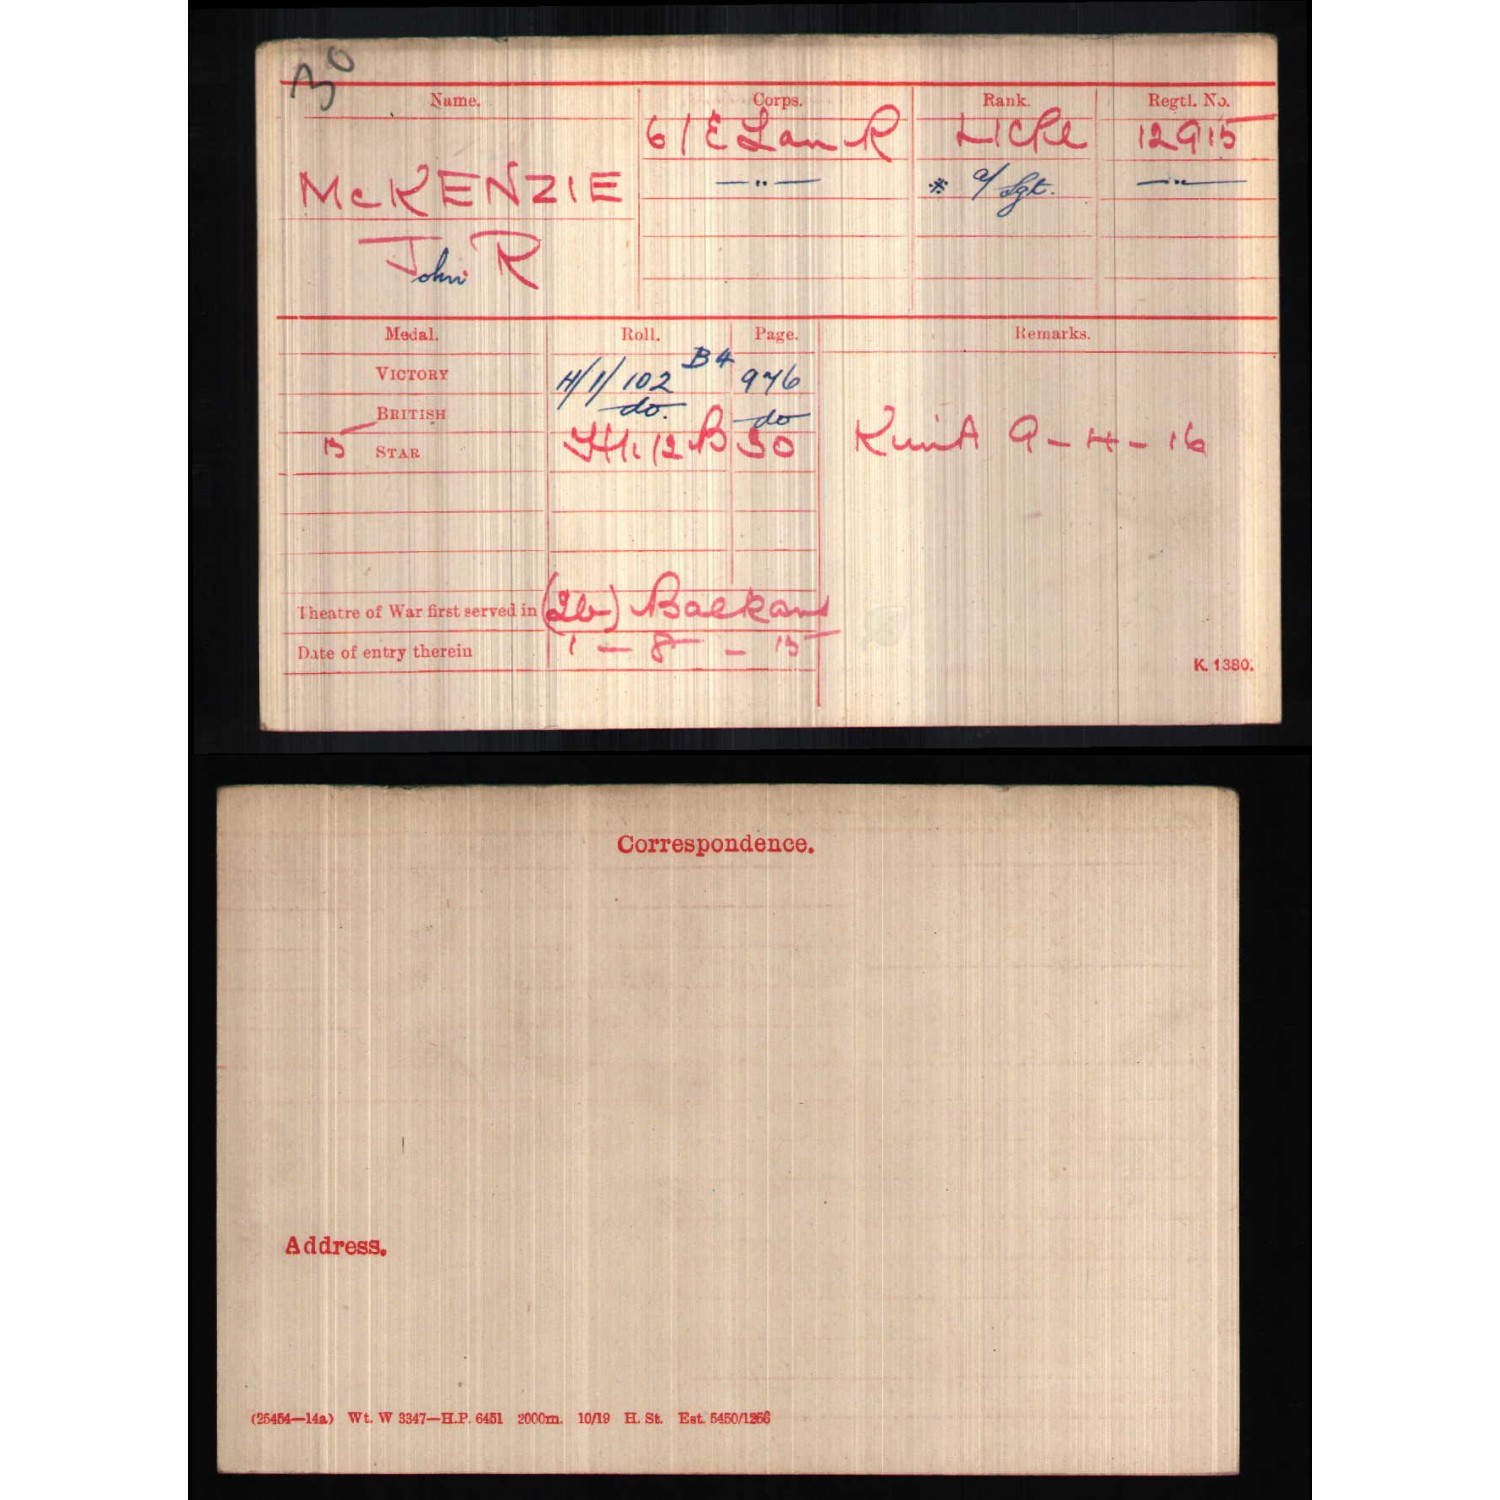 30
Name. Corps. Rank. Regtl. No.
6/E Lan R L/Cpl 12915
McKENZIE —"— * a/Sgt. —"—
John R
Medal. Roll. Page. Remarks.
VICTORY H/1/102 B4 976
BRITISH do. do
15 STAR H1.12B 30 KinA 9-4-16
Theatre of War first served in (2b) Balkans
Date of entry therein 1-8-15
K. 1380.
Correspondence.
Address.
(25454—14a) Wt. W 3347—H.P. 6451 2000m. 10/19 H. St. Est. 5450/1256